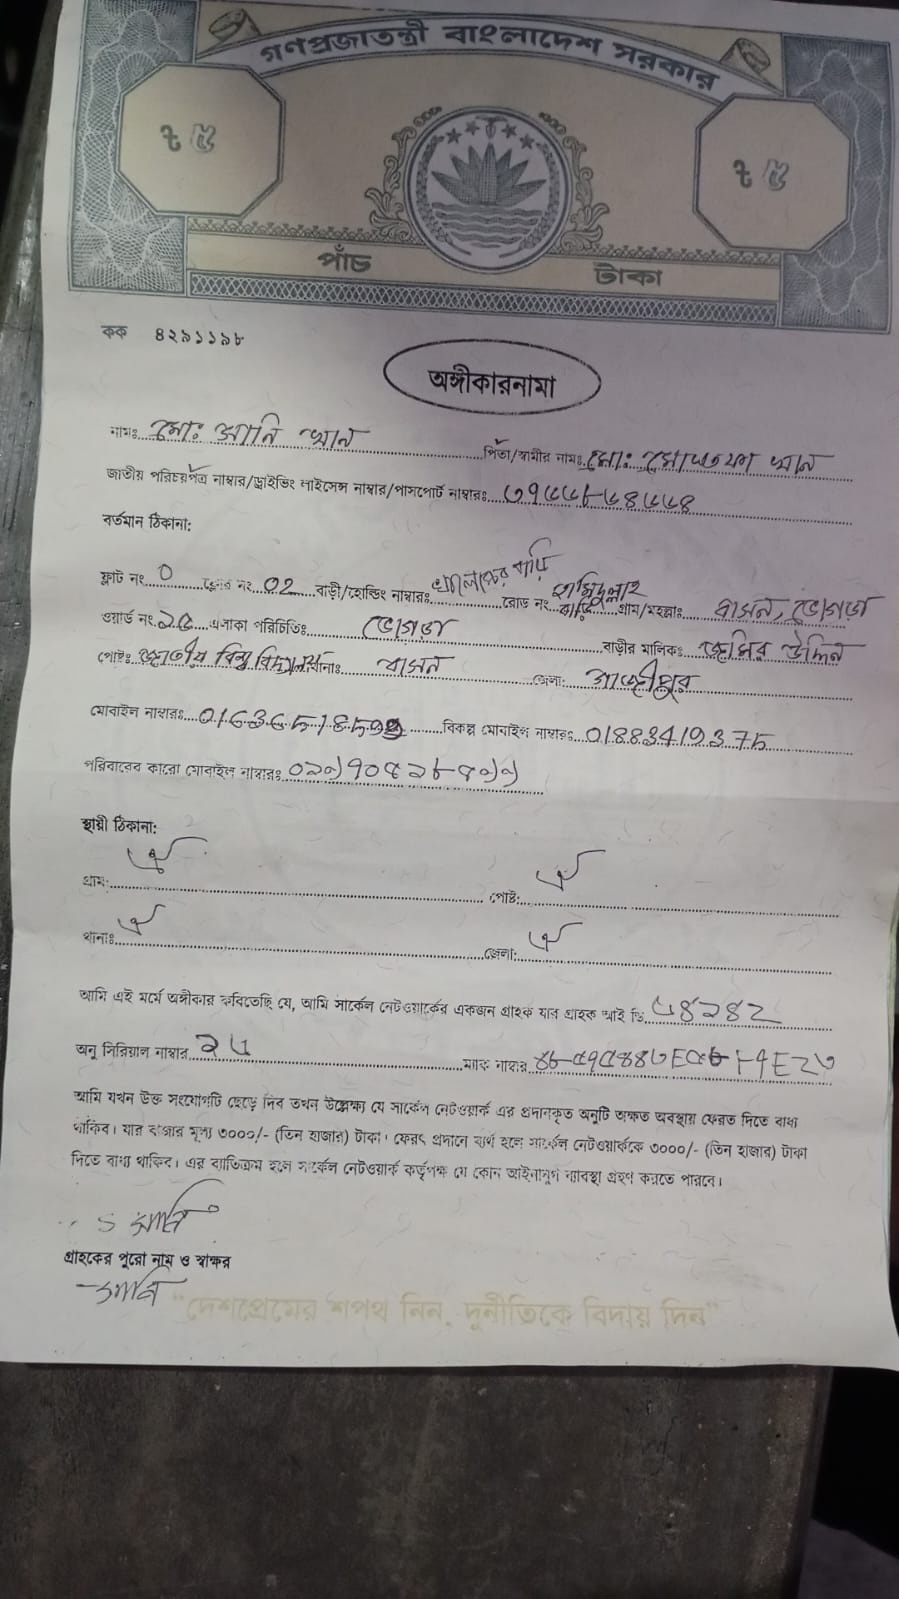 গণপ্রজাতন্ত্রী বাংলাদেশ সরকার
৳ ৫ ৳ ৫
পাঁচ টাকা
কক ৪২৯১১৯৮
অঙ্গীকারনামা
নামঃ মোঃ সানি খান পিতা/স্বামীর নামঃ মোঃ মোস্তফা খান
জাতীয় পরিচয়পত্র নাম্বার/ড্রাইভিং লাইসেন্স নাম্বার/পাসপোর্ট নাম্বারঃ
বর্তমান ঠিকানা:
ফ্লাট নং 0 ফ্লোর নং 02 বাড়ী/হোল্ডিং নাম্বারঃ রোড নং গ্রাম/মহল্লাঃ বাসন, ভোগড়া
ওয়ার্ড নং এলাকা পরিচিতিঃ ভোগড়া বাড়ীর মালিকঃ উদ্দিন
পোষ্টঃ জাতীয় বিশ্ব বিদ্যালয় থানাঃ বাসন জেলা: গাজীপুর
মোবাইল নাম্বারঃ বিকল্প মোবাইল নাম্বারঃ 01883419375
পরিবারের কারো মোবাইল নাম্বারঃ
স্থায়ী ঠিকানা:
গ্রাম: পোষ্ট:
থানাঃ জেলা:
আমি এই মর্মে অঙ্গীকার করিতেছি যে, আমি সার্কেল নেটওয়ার্কের একজন গ্রাহক যার গ্রাহক আই ডি
অনু সিরিয়াল নাম্বার ২৬ ম্যাক নাম্বার
আমি যখন উক্ত সংযোগটি ছেড়ে দিব তখন উল্লেক্ষ্য যে সার্কেল নেটওয়ার্ক এর প্রদানকৃত অনুটি অক্ষত অবস্থায় ফেরত দিতে বাধ্য
থাকিব। যার বাজার মূল্য ৩০০০/- (তিন হাজার) টাকা। ফেরৎ প্রদানে ব্যর্থ হলে সার্কেল নেটওয়ার্ককে ৩০০০/- (তিন হাজার) টাকা
দিতে বাধ্য থাকিব। এর ব্যতিক্রম হলে সার্কেল নেটওয়ার্ক কর্তৃপক্ষ যে কোন আইনানুগ ব্যাবস্থা গ্রহণ করতে পারবে।
সানি
গ্রাহকের পুরো নাম ও স্বাক্ষর
সানি
"দেশপ্রেমের শপথ নিন, দুর্নীতিকে বিদায় দিন"